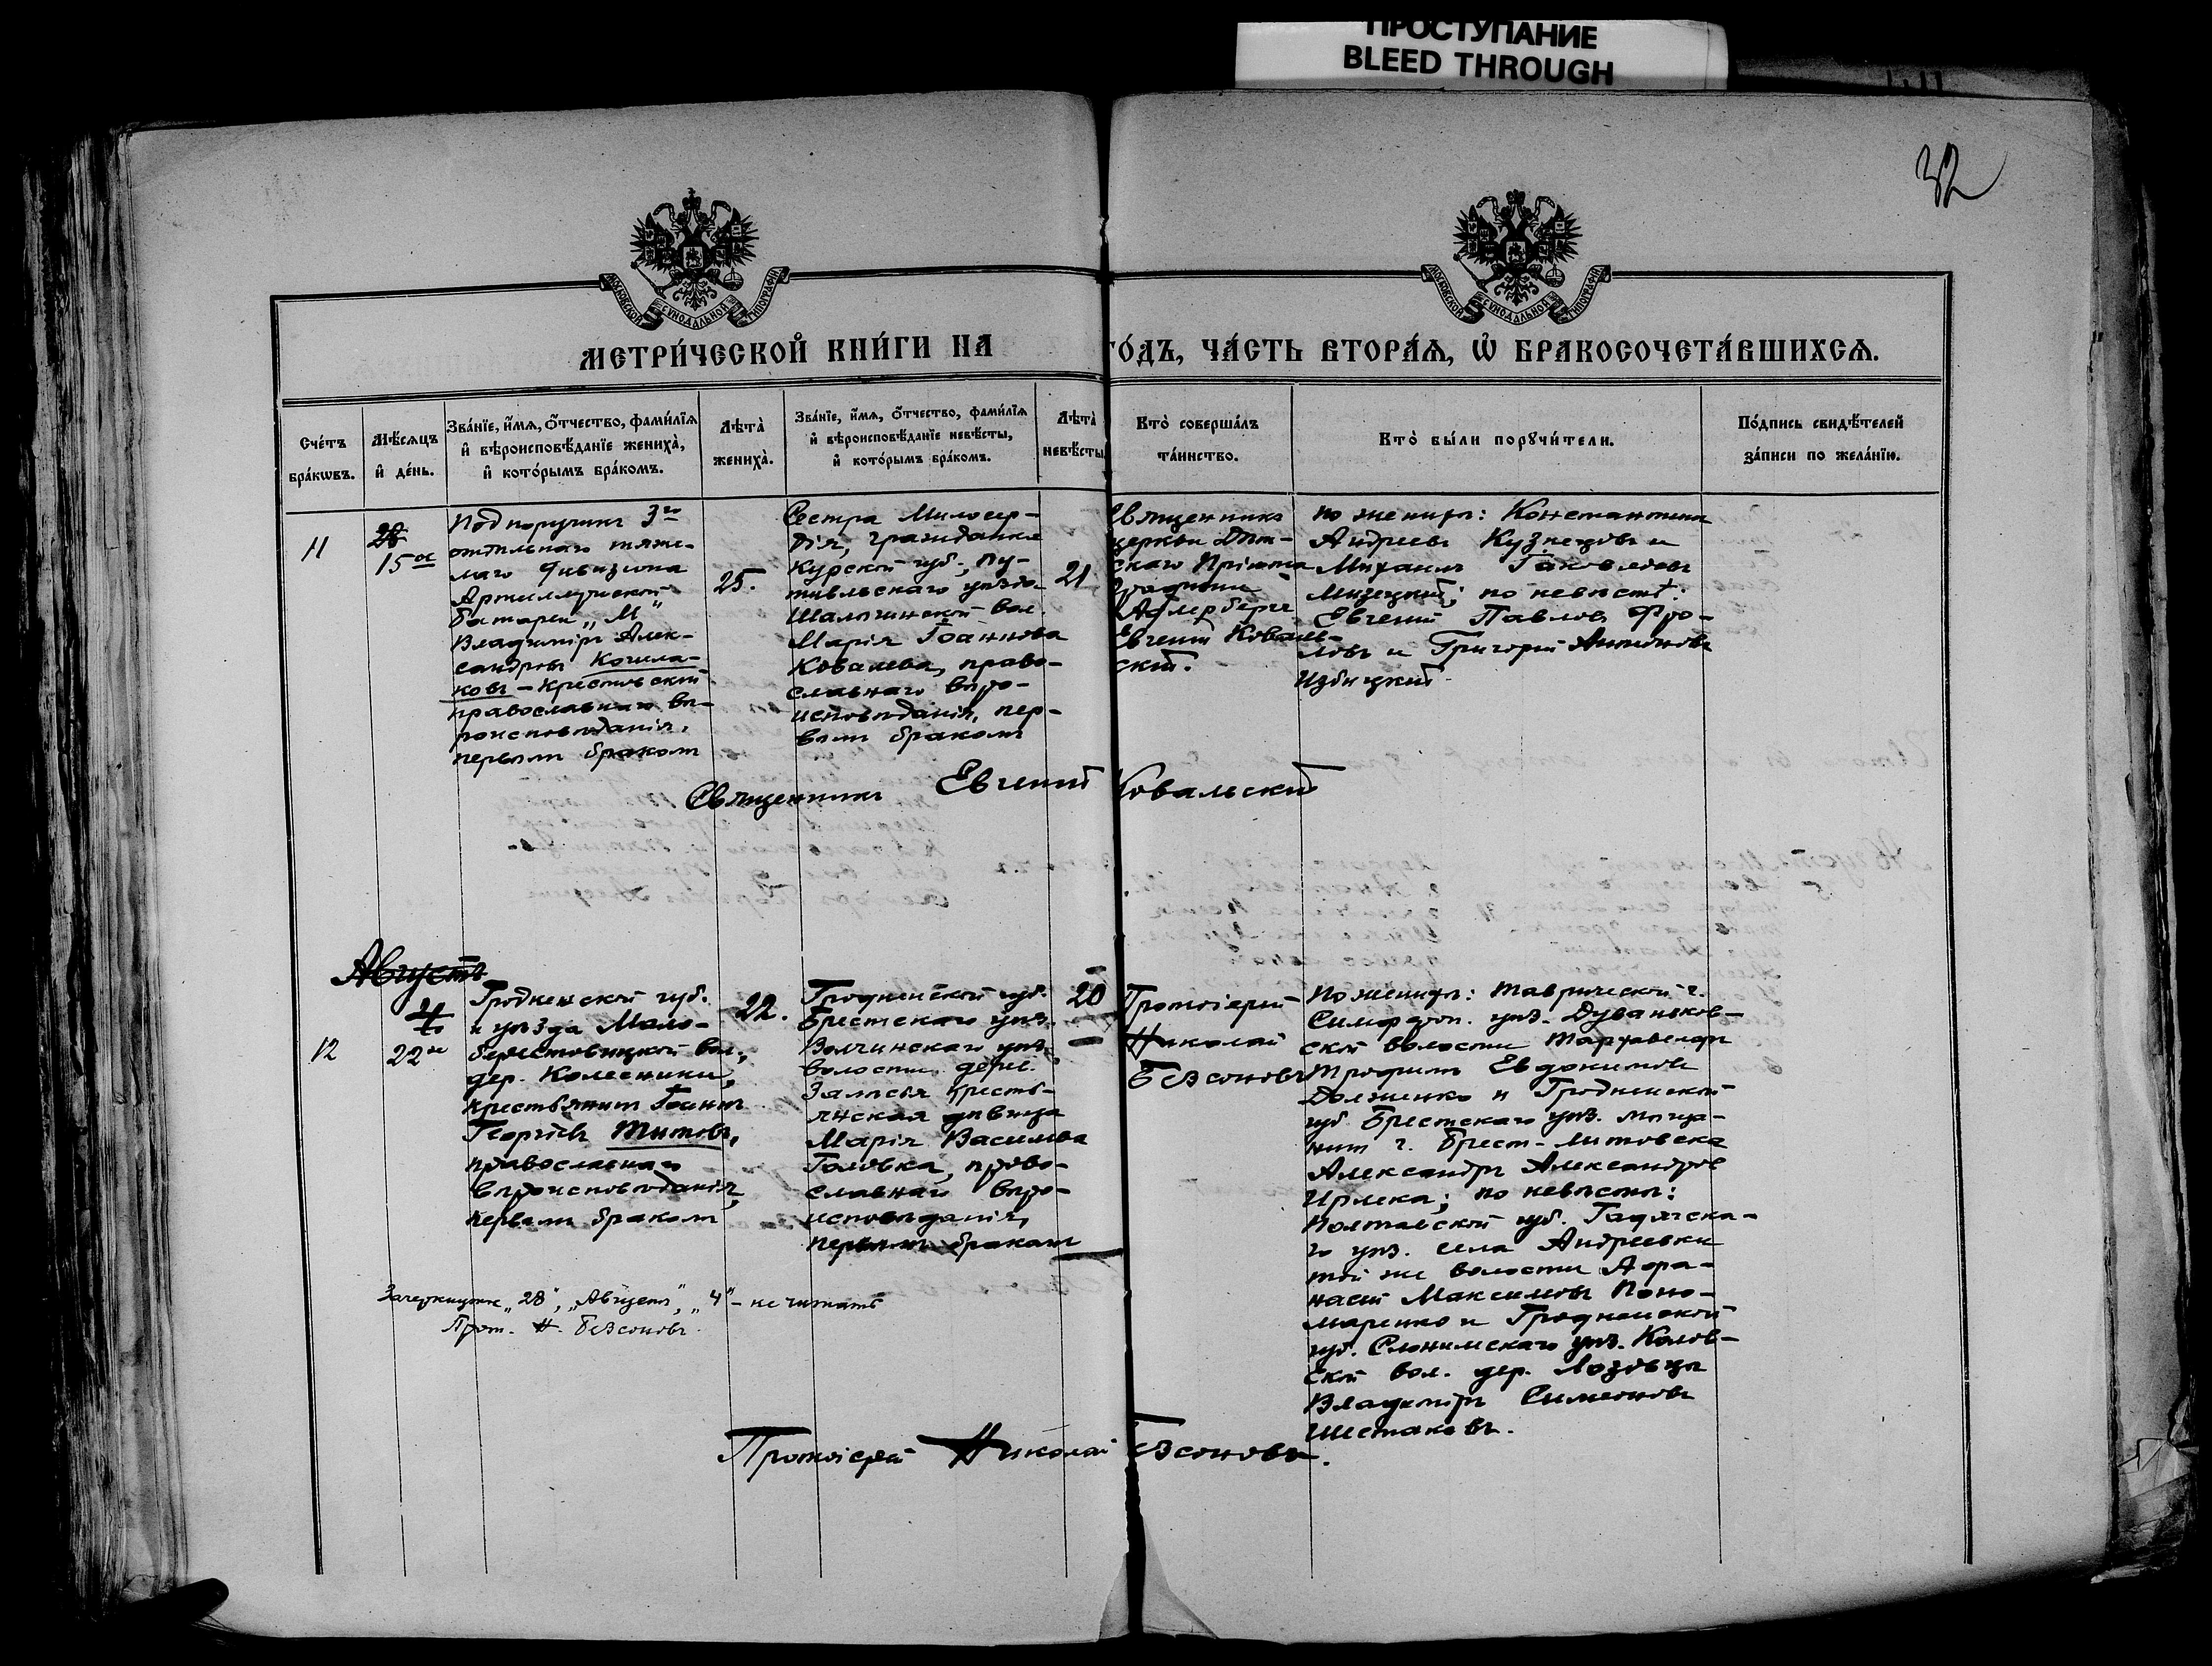 ПРОСТУПАНИЕ
BLEED THROUGH
32
МОСКОВСКОЙ СѴНОДАЛЬНОЙ ТИПОГРАФІИ
МОСКОВСКОЙ СѴНОДАЛЬНОЙ ТИПОГРАФІИ
МЕТРИ́ЧЕСКОЙ КНИ́ГИ НА ГО́ДЪ, ЧА́СТЬ ВТОРА́Ѧ, Ѽ БРАКОСОЧЕТА́ВШИХСѦ.
Сче́тъ
бра́кѡвъ.
Мѣ́сѧцъ
и҆ де́нь.
Зва́нїе, и҆́мѧ, ѻ҆́тчество, фами́лїѧ
и҆ вѣроисповѣ́данїе жениха̀,
и҆ кото́рымъ бра́комъ.
Лѣта̀
жениха̀.
Зва́нїе, и҆́мѧ, ѻ҆́тчество, фами́лїѧ
и҆ вѣроисповѣ́данїе невѣ́сты,
и҆ кото́рымъ бра́комъ.
Лѣта̀
невѣ́сты.
Кто̀ соверша́лъ
та́инство.
Кто̀ бы́ли порꙋчи́тели.
По́дпись свидѣ́телей
за́писи по жела́нїю.
11
28
15ое
Подпоручикъ 3го
отдѣльнаго тяже-
лаго дивизіона
Артиллерійской
батареи „М"
Владиміръ Алек-
сандровъ
ковъ – Крестовскій
православнаго вѣ-
роисповѣданія,
первымъ бракомъ
25.
Сестра Милосер-
дія, гражданка
Курской губ., Пу-
тивльскаго уѣзда
вол.
Марія Іоаннова
Ковалева, право-
славнаго вѣро-
исповѣданія, пер-
вымъ бракомъ
21
Священникъ
церкви Дѣт-
скаго Пріюта
Графини
Адлербергъ
Евгеній Коваль-
скій.
По женихѣ: Константинъ
Андреевъ Кузнецовъ и
Михаилъ Яковлевъ
по невѣстѣ:
Евгеній Павловъ Фро-
ловъ и Григорій Антоновъ
Избицкій.
Священникъ Евгеній Ковальскій
Августъ
12
4
22го
Гродненской губ.
и уѣзда Мало-
берестовицкой вол.,
дер. Колесники,
крестьянинъ Іоаннъ
Георгіевъ Титовъ,
православнаго
вѣроисповѣданія,
первымъ бракомъ
22.
Гродненской губ.
Брестскаго уѣз.
Волчинскаго уѣз.
волости дерев.
Залѣсья кресть-
янская дѣвица
Марія Васильева
Головка, право-
славнаго вѣро-
исповѣданія,
первымъ бракомъ
20
Протоіерей
Николай
Безсоновъ
По женихѣ: Таврической г.
Симфероп. уѣз. Дуванков-
ской волости
Трофимъ Евдокимовъ
Долженко и Гродненской
губ. Брестскаго уѣз. мѣща-
нинъ г. Брест-Литовска
Александръ Александровъ
Ирлека; по невѣстѣ:
Полтавской губ. Гадячска-
го уѣз. села Андреевки
той же волости Афа-
насій Максимовъ Поно-
маренко и Гродненской
губ. Слонимскаго уѣз. Козлов-
ской вол. дер. Лозовцы
Владиміръ Симеоновъ
Шестаковъ.
Зачеркнутое „28", „Августъ", „4" – не читать
Прот. Н. Безсоновъ.
Протоіерей Николай Безсоновъ.